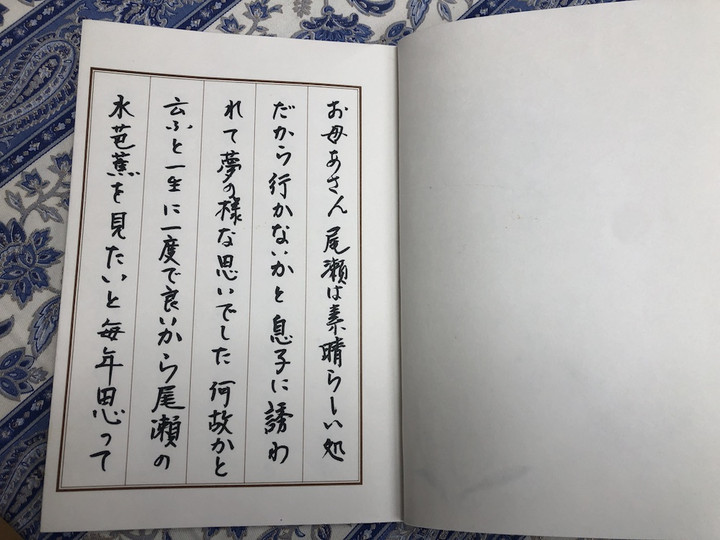 お母あさん 尾瀬は素晴らしい処
だから行かないかと息子に誘わ
れて夢の様な思いでした 何故かと
云ふと一生に一度で良いから尾瀬の
水芭蕉を見たいと毎年思って